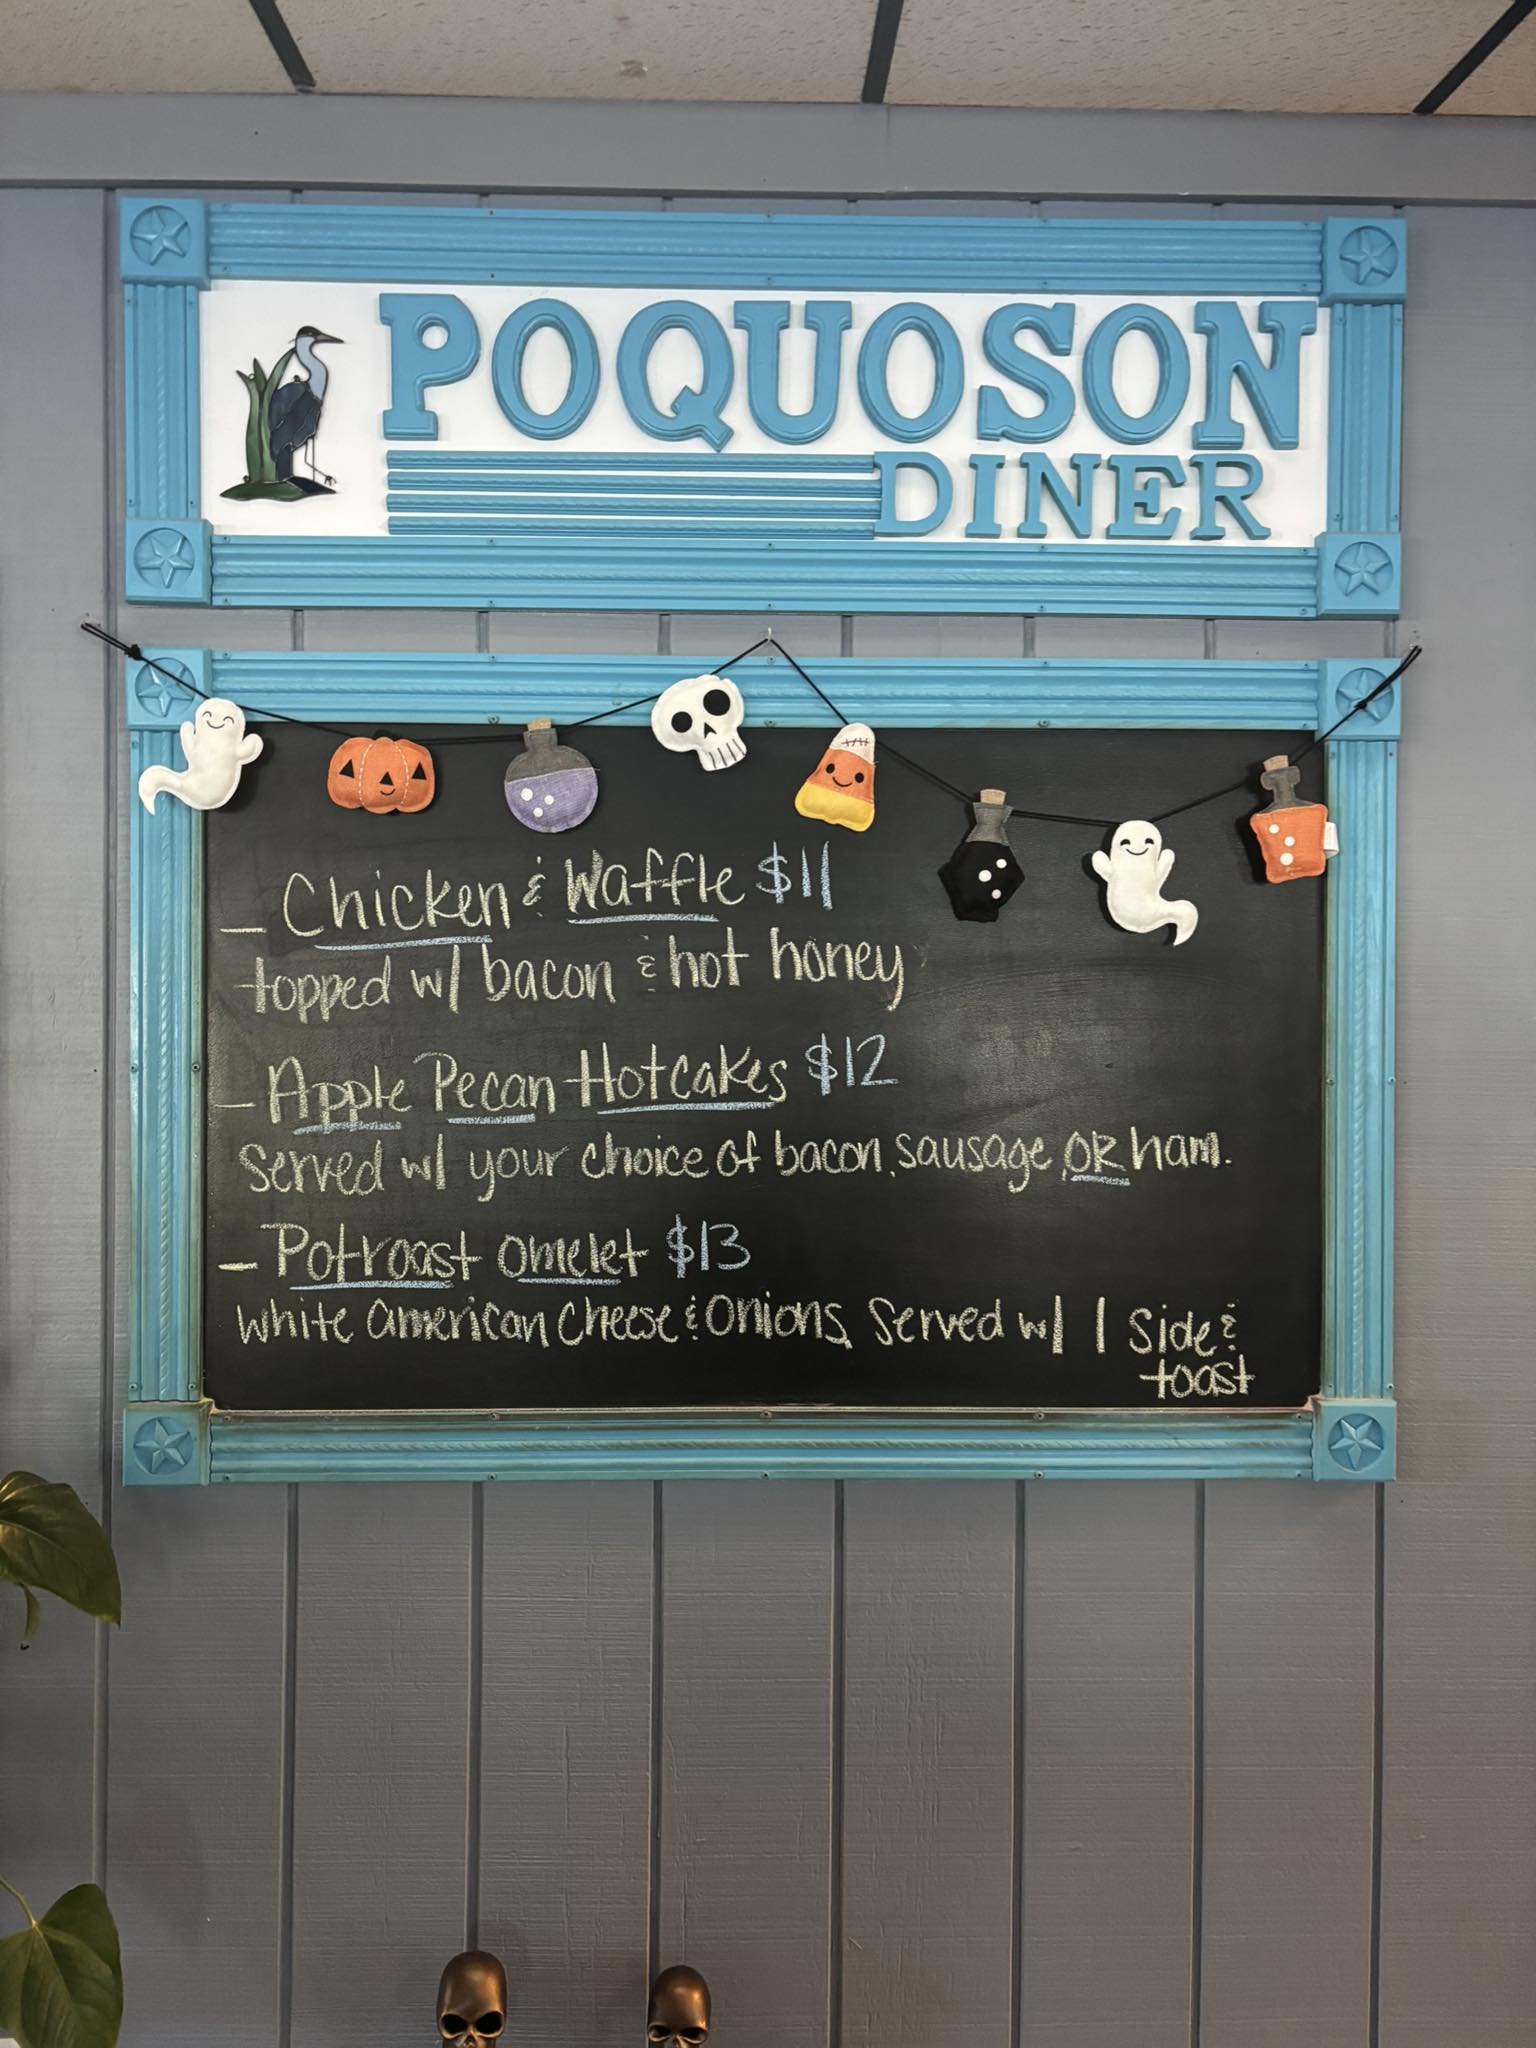 POQUOSON
DINER
- Chicken & Waffle $11
topped w/ bacon & hot honey
- Apple Pecan Hotcakes $12
served w/ your choice of bacon, sausage, OR ham.
- Potroast omelet $13
White american cheese & onions, Served w/ 1 side &
toast